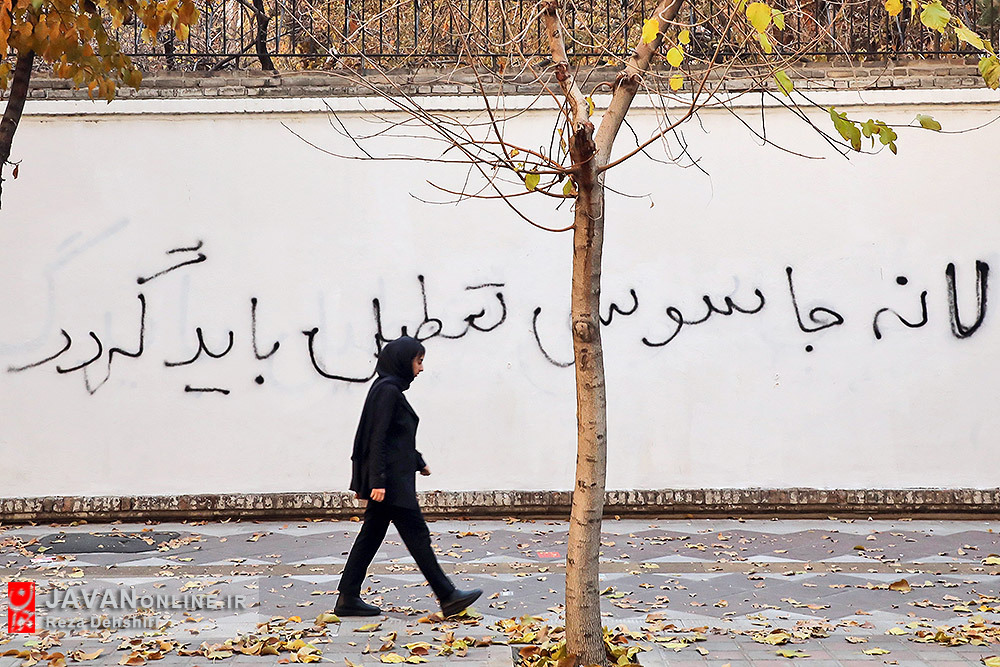 لانه جاسوسی تعطیل باید گردد
JAVANONLINE.IR
Reza Dehshiri